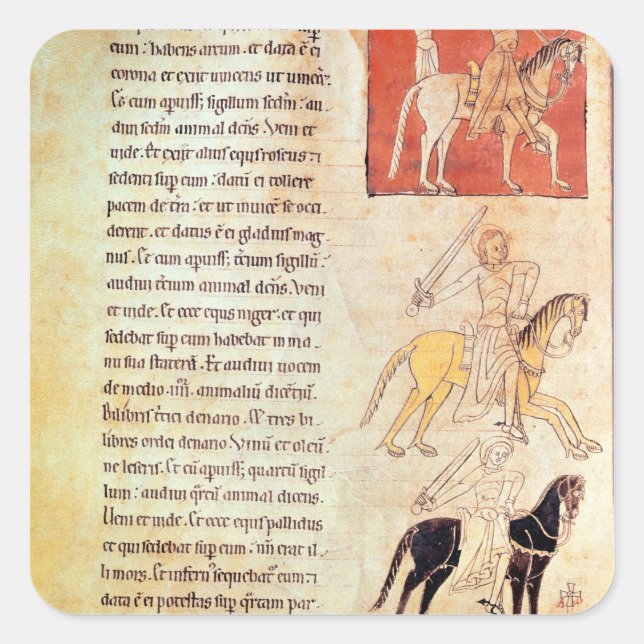 eum: habens arcum. et data ē ei
corona et exiit uincens ut uinceꝛ.
Et cum apuiſſꝫ sigillum sedm̄: au-
diui sedm̄ animal dēns. Veni et
uide. Et exiit alius equs roseus: ⁊
sedenti sup eum: datū ei tollere
pacem de t̄ra: et ut inuicē se occi-
derent. et datus ē ei gladius mag-
nus. Et cum apuiſſꝫ t̄cium sigillū:
audiui t̄cium animal dēns. Veni
et uide. Et ecce equs niger. et qui
sedebat sup eum habebat in ma
nu sua staterā. Et audiui uocem
de medio .iiii. animaliū dicētiū.
Bilibris t̄tici denario. & tres bi
libres ordei denario. Vinū et oleū
ne leseris. Et cū apuiſſꝫ quartū sigil
lum: audiui q̄rtū animal dicens.
Veni et uide. Et ecce equs pallidus
et qui sedebat sup eum: nm̄ erat il
li mors. Et infernꝰ sequebatꝰ eum: ⁊
data ē ei potestas sup q̄rtam par-